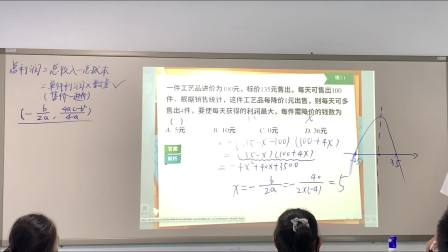 总利润=总收入-总成本
=单件利润×数量 ✓
(售价-进价)
(-b/2a, 4ac-b²/4a)
一件工艺品进价为100元，标价135元售出，每天可售出100
件．根据销售统计，这件工艺品每降价1元出售，则每天可多
售出4件，要使每天获得的利润最大，每件需降价的钱数为
( )
A. 5元 B. 10元 C. 0元 D. 36元
x
答案
解析
(135-x-100)(100+4x)
=(35-x)(100+4x)
=-4x²+40x+3500
x=-b/2a=-40/2×(-4)=5
-25 35